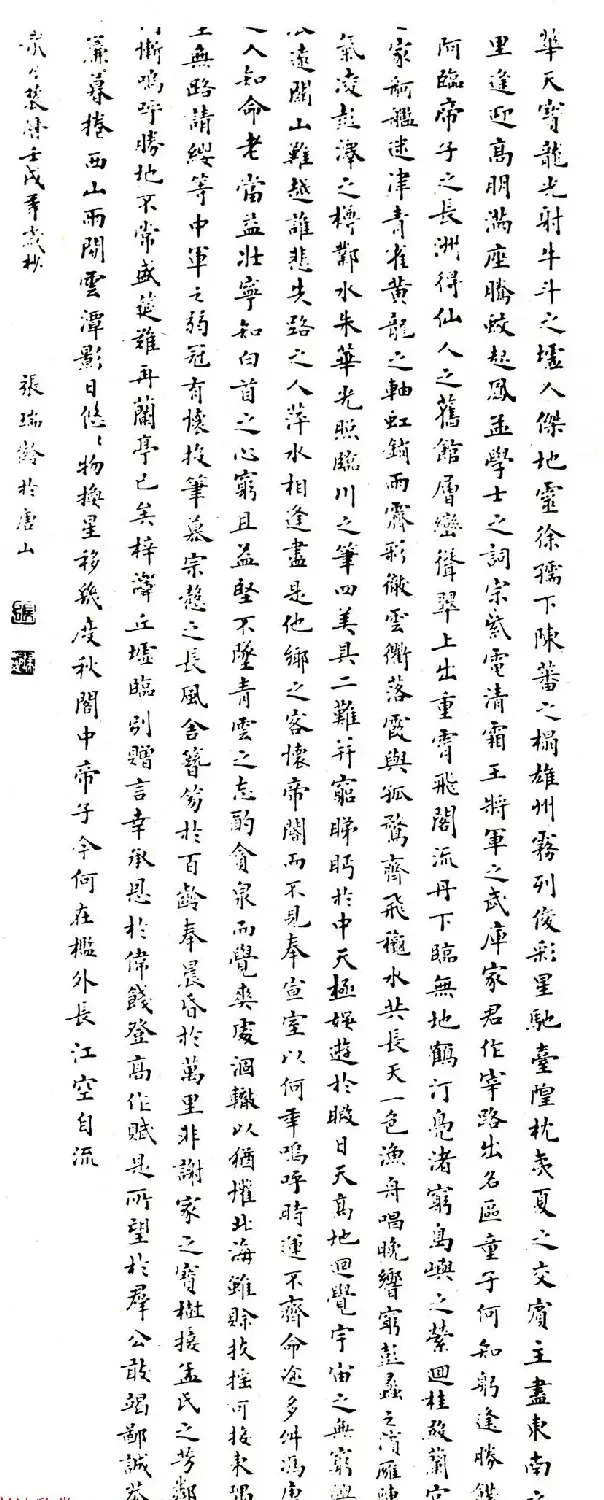 華天寳龍光射牛斗之墟人傑地靈徐孺下陳蕃之榻雄州霧列俊彩星馳臺隍枕夷夏之交賓主盡東南
里逢迎髙明滿座騰蛟起鳳孟學士之詞宗紫電清霜王將軍之武庫家君作宰路出名區童子何知躬逢勝餞
阿臨帝子之長洲得仙人之舊館層巒聳翠上出重霄飛閣流丹下臨無地鶴汀鳧渚窮島嶼之縈迴桂殿蘭宫
家舸艦迷津青雀黄龍之軸虹銷雨霽彩徹雲衢落霞與孤鶩齊飛穐水共長天一色漁舟唱晚響窮彭蠡之濱雁陣
氣凌彭澤之樽鄴水朱華光照臨川之筆四美具二難并窮睇眄於中天極娛遊於暇日天高地迥覺宇宙之無窮興
遠關山難越誰悲失路之人萍水相逢盡是他鄉之客懷帝閽而不見奉宣室以何年嗚呼時運不齊命途多舛馮唐
人知命老當益壯寧知白首之心窮且益堅不墜青雲之志酌貪泉而覺爽處涸轍以猶懽北海雖賒扶搖可接東隅
無路請纓等中軍之弱冠有懷投筆慕宗愨之長風舍簪笏於百齡奉晨昏於萬里非謝家之寳樹接孟氏之芳鄰
慚嗚呼勝地不常盛筵難再蘭亭已矣梓澤丘墟臨别贈言幸承恩於偉餞登高作賦是所望於羣公敢竭鄙誠恭
簾暮捲西山雨閒雲潭影日悠〻物换星移幾度秋閣中帝子今何在檻外長江空自流
壬戌年歲杪 張瑞齡於唐山